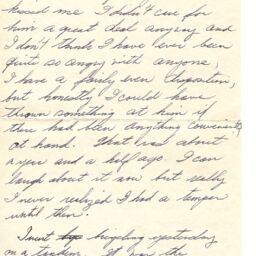 kissed me I didn't care for
him a great deal anyway and
I don't think I have ever been
quite so angry with anyone,
I have a fairly even disposition,
but honestly I could have
thrown something at him if
there had been anything convenient
at hand. That was about
a year and a half ago. I can
laugh about it now but really
I never realized I had a temper
until then.
I went bicycling yesterday
on a tandem. It was the